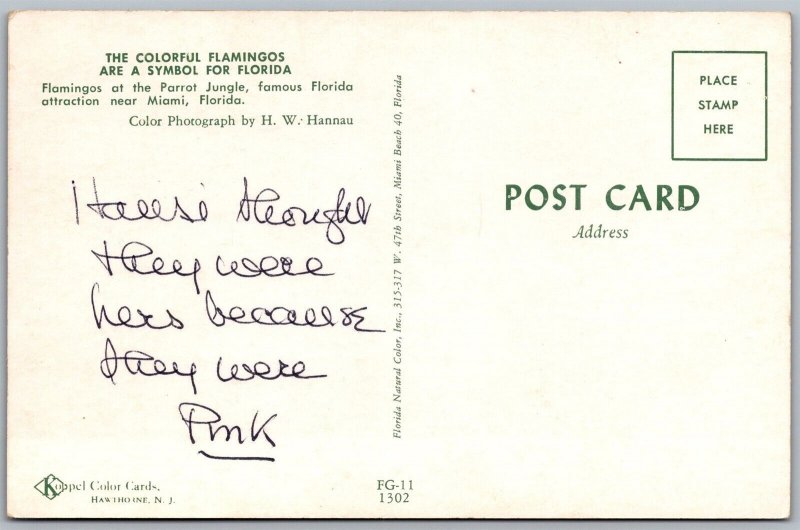 THE COLORFUL FLAMINGOS
ARE A SYMBOL FOR FLORIDA
Flamingos at the Parrot Jungle, famous Florida
attraction near Miami, Florida.
Color Photograph by H. W. Hannau
thought
they were
hers because
they were
Pink
Koppel Color Cards,
HAWTHORNE, N. J.
Florida Natural Color, Inc., 315-317 W. 47th Street, Miami Beach 40, Florida
FG-11
1302
PLACE
STAMP
HERE
POST CARD
Address